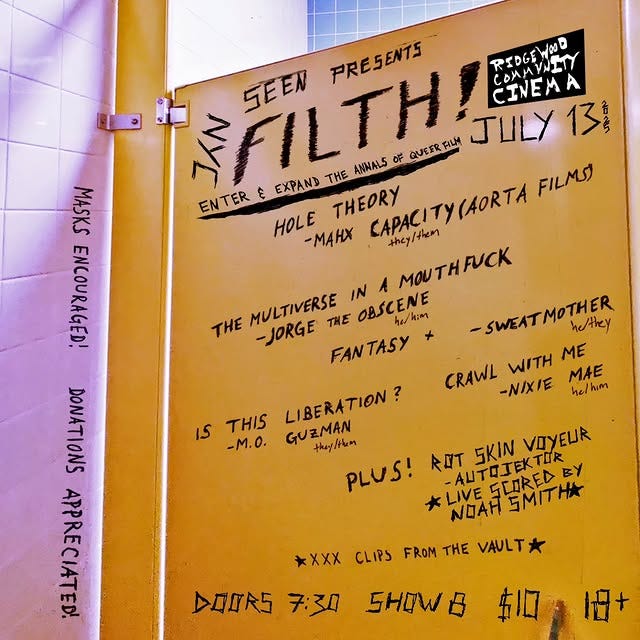 JAN SEEN PRESENTS
FILTH!
RIDGEWOOD
COMMUNITY
CINEMA
JULY 13 2025
ENTER & EXPAND THE ANNALS OF QUEER FILM
HOLE THEORY
-MAHX CAPACITY (AORTA FILMS)
they/them
THE MULTIVERSE IN A MOUTHFUCK
-JORGE THE OBSCENE
he/him
FANTASY +
-SWEATMOTHER
he/they
CRAWL WITH ME
-NIXIE MAE
he/him
IS THIS LIBERATION?
-M.O. GUZMAN
they/them
PLUS! ROT SKIN VOYEUR
-AUTOJEKTOR
★LIVE SCORED BY
NOAH SMITH★
★XXX CLIPS FROM THE VAULT★
DOORS 7:30 SHOW 8 $10 18+
MASKS ENCOURAGED! DONATIONS APPRECIATED!